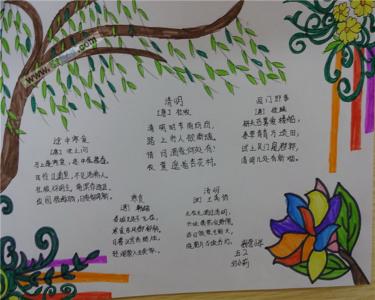 清明
[唐] 杜牧
清明时节雨纷纷,
路上行人欲断魂
借问酒家何处有
牧童遥指杏花村。
门即事
[唐] 张继
耕夫召募逐楼船,
春草青青万顷田;
试上吴门窥郡郭,
清明几处有新烟。
途中寒食
[唐] 宋之问
马上逢寒食,途中属暮春。
可怜江浦望,不见洛桥人。
北极怀明主,南溟作逐臣。
故园肠断处,日夜柳条新。
寒食
[唐] 韩翃
春城无处不飞花,
寒食东风御柳斜。
日暮汉宫传蜡烛,
轻烟散入五侯家。
清明
[宋] 王禹偁
无花无酒过清明,
兴味萧然似野僧。
昨日邻家乞新火,
晓窗分与读书灯。